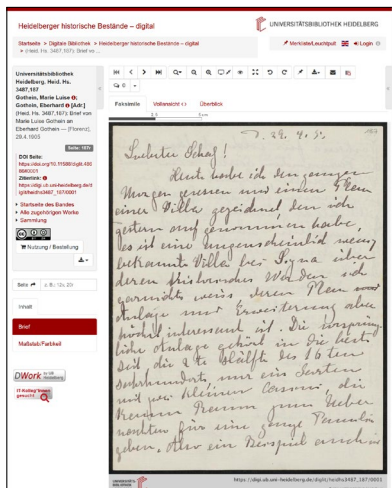 Heidelberger historische Bestände – digital
UNIVERSITÄTSBIBLIOTHEK HEIDELBERG
Startseite > Digitale Bibliothek > Heidelberger historische Bestände – digital
> (Heid. Hs. 3487,187): Brief vo ...
Merkliste/Leuchtpult
Login
Universitätsbibliothek
Heidelberg, Heid. Hs.
3487,187
Gothein, Marie Luise;
Gothein, Eberhard [Adr.]
(Heid. Hs. 3487,187): Brief von
Marie Luise Gothein an
Eberhard Gothein — [Florenz],
29.4.1905
Seite: 187r
DOI Seite:
Zitierlink:
Startseite des Bandes
Alle zugehörigen Werke
Sammlung
Nutzung / Bestellung
Seite
z. B.: 12v, 20r
Inhalt
Brief
Maßstab/Farbkeil
DWork
IT-Kolleg*innen
gesucht
0
Faksimile
Vollansicht
Überblick
187
29. 4. 5.
Liebster Schatz!
Heute habe ich den ganzen
Morgen gesessen und einen Plan
einer Villa gezeichnet, den ich
gestern aufgenommen habe,
es ist eine augenscheinlich wenig
bekannte Villa bei Signa über
deren historisches Werden ich
garnichts weiss, deren Plan
Anlage und Erweiterung aber
höchst interessant ist. Die ursprüng
liche Anlage gehört in die beste
Zeit die 2te Hälfte des 16ten
Jahrhunderts, nur ein Garten
mit zwei kleinen Casini, die
kaum Raum zum Ueber
nachten für eine ganze Familie
geben. Also ein Beispiel
UNIVERSITÄTS-
BIBLIOTHEK
https://digi.ub.uni-heidelberg.de/diglit/heidhs3487_187/0001